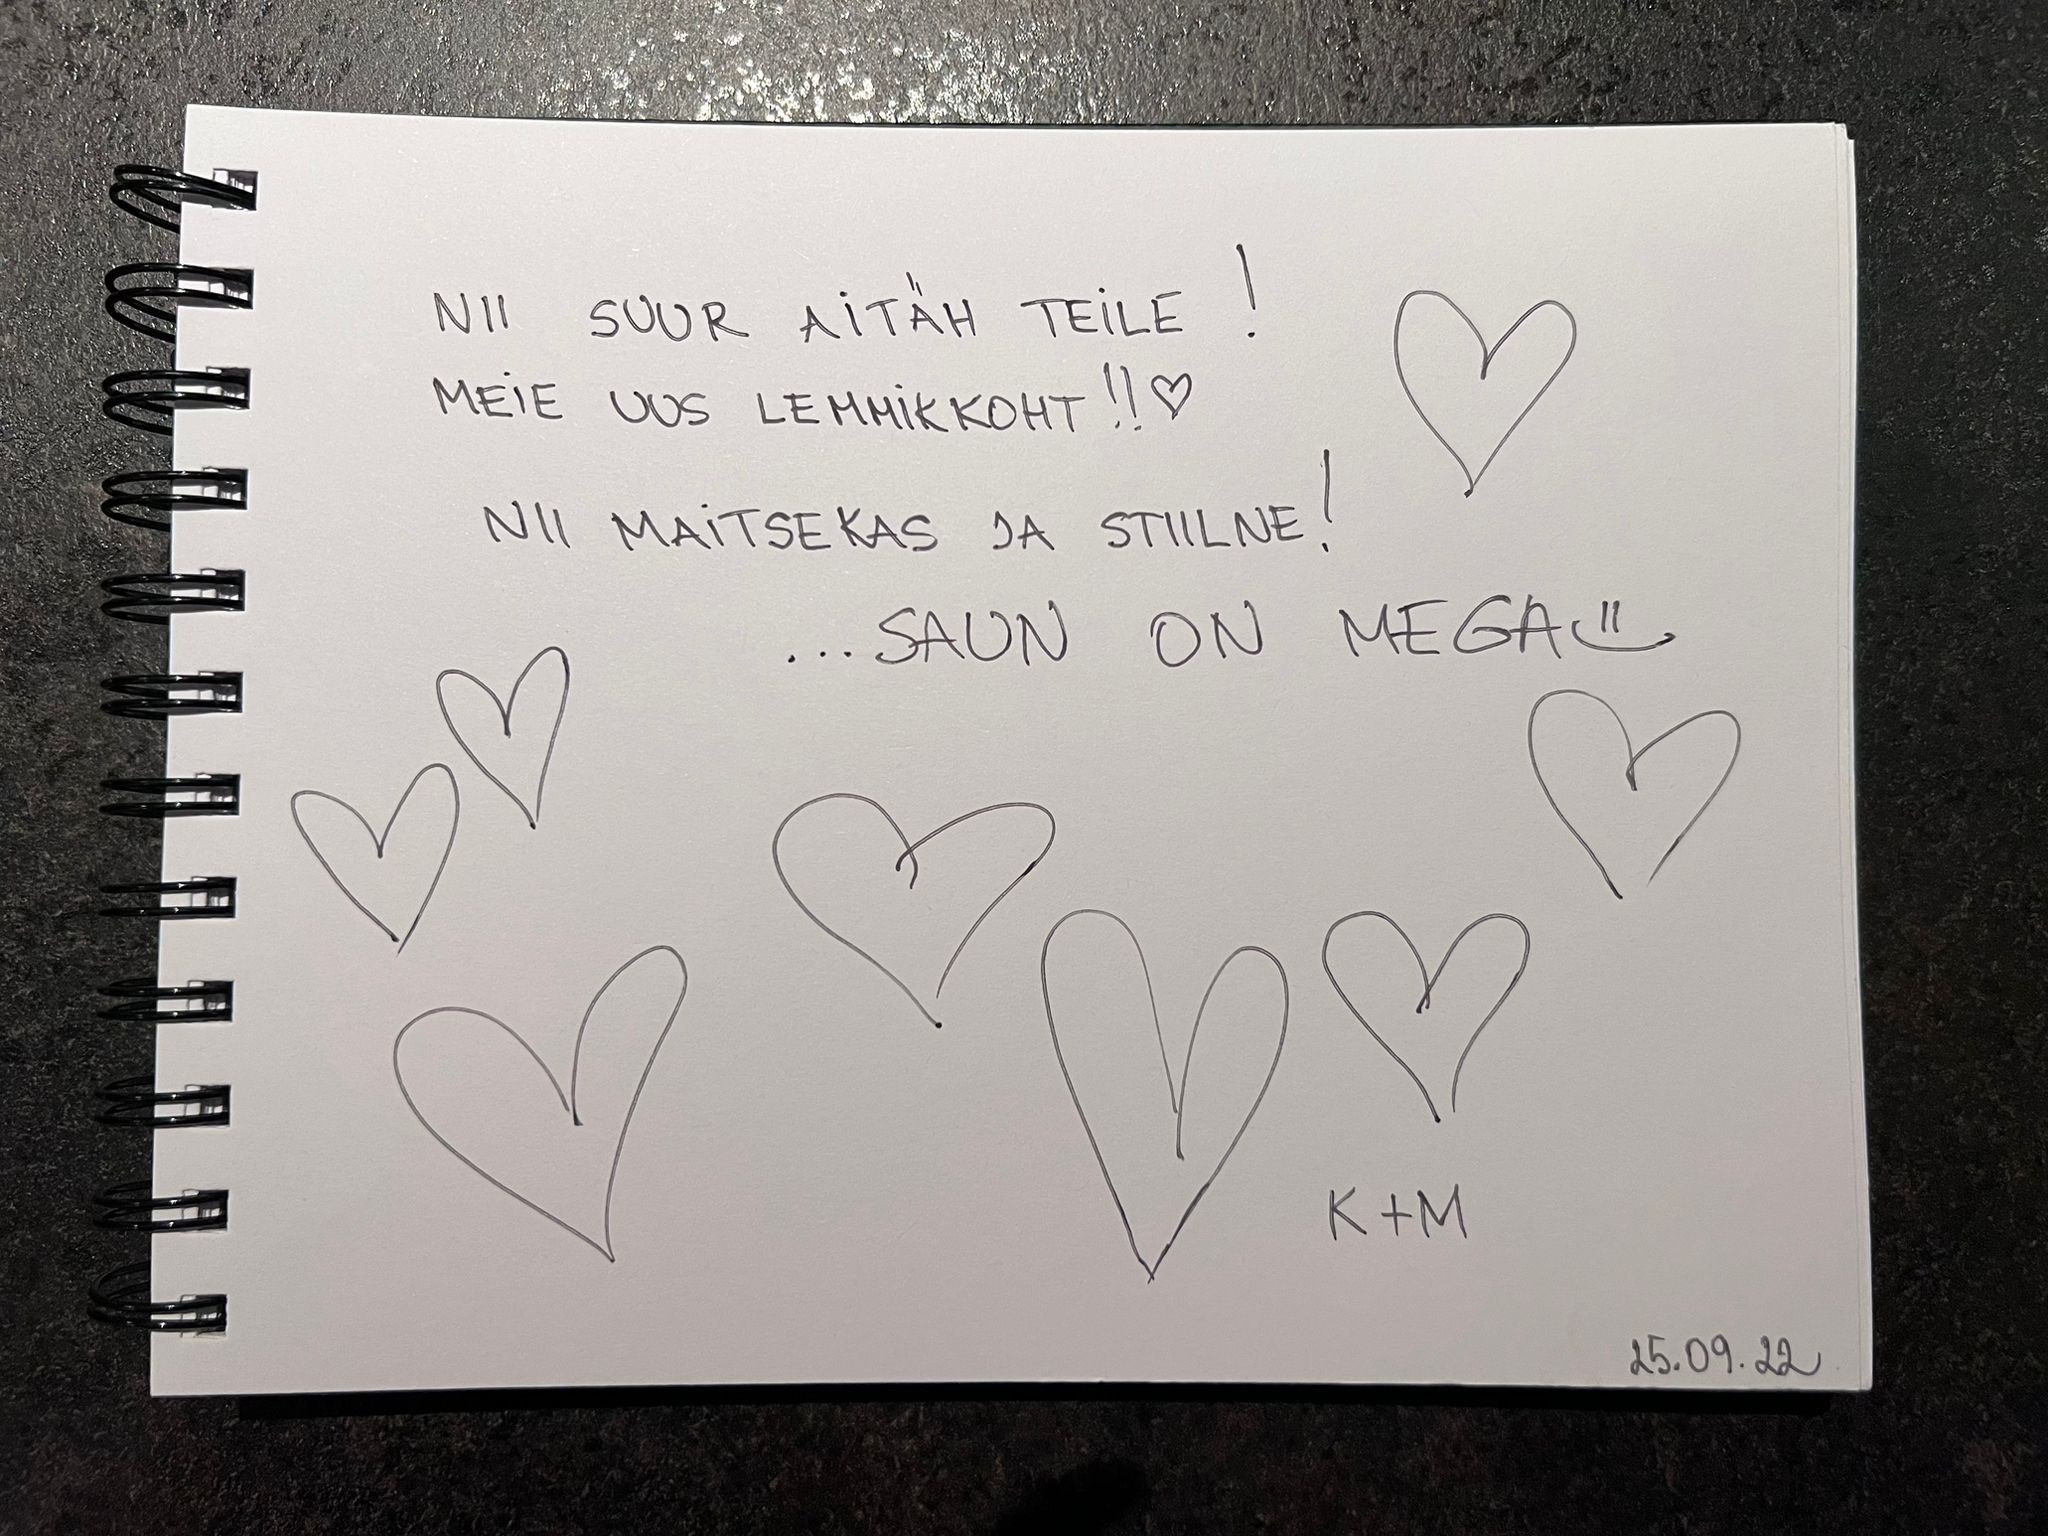 NII SUUR AITÄH TEILE!
MEIE UUS LEMMIKKOHT!!♡
NII MAITSEKAS JA STIILNE!
...SAUN ON MEGA
K+M
25.09.22